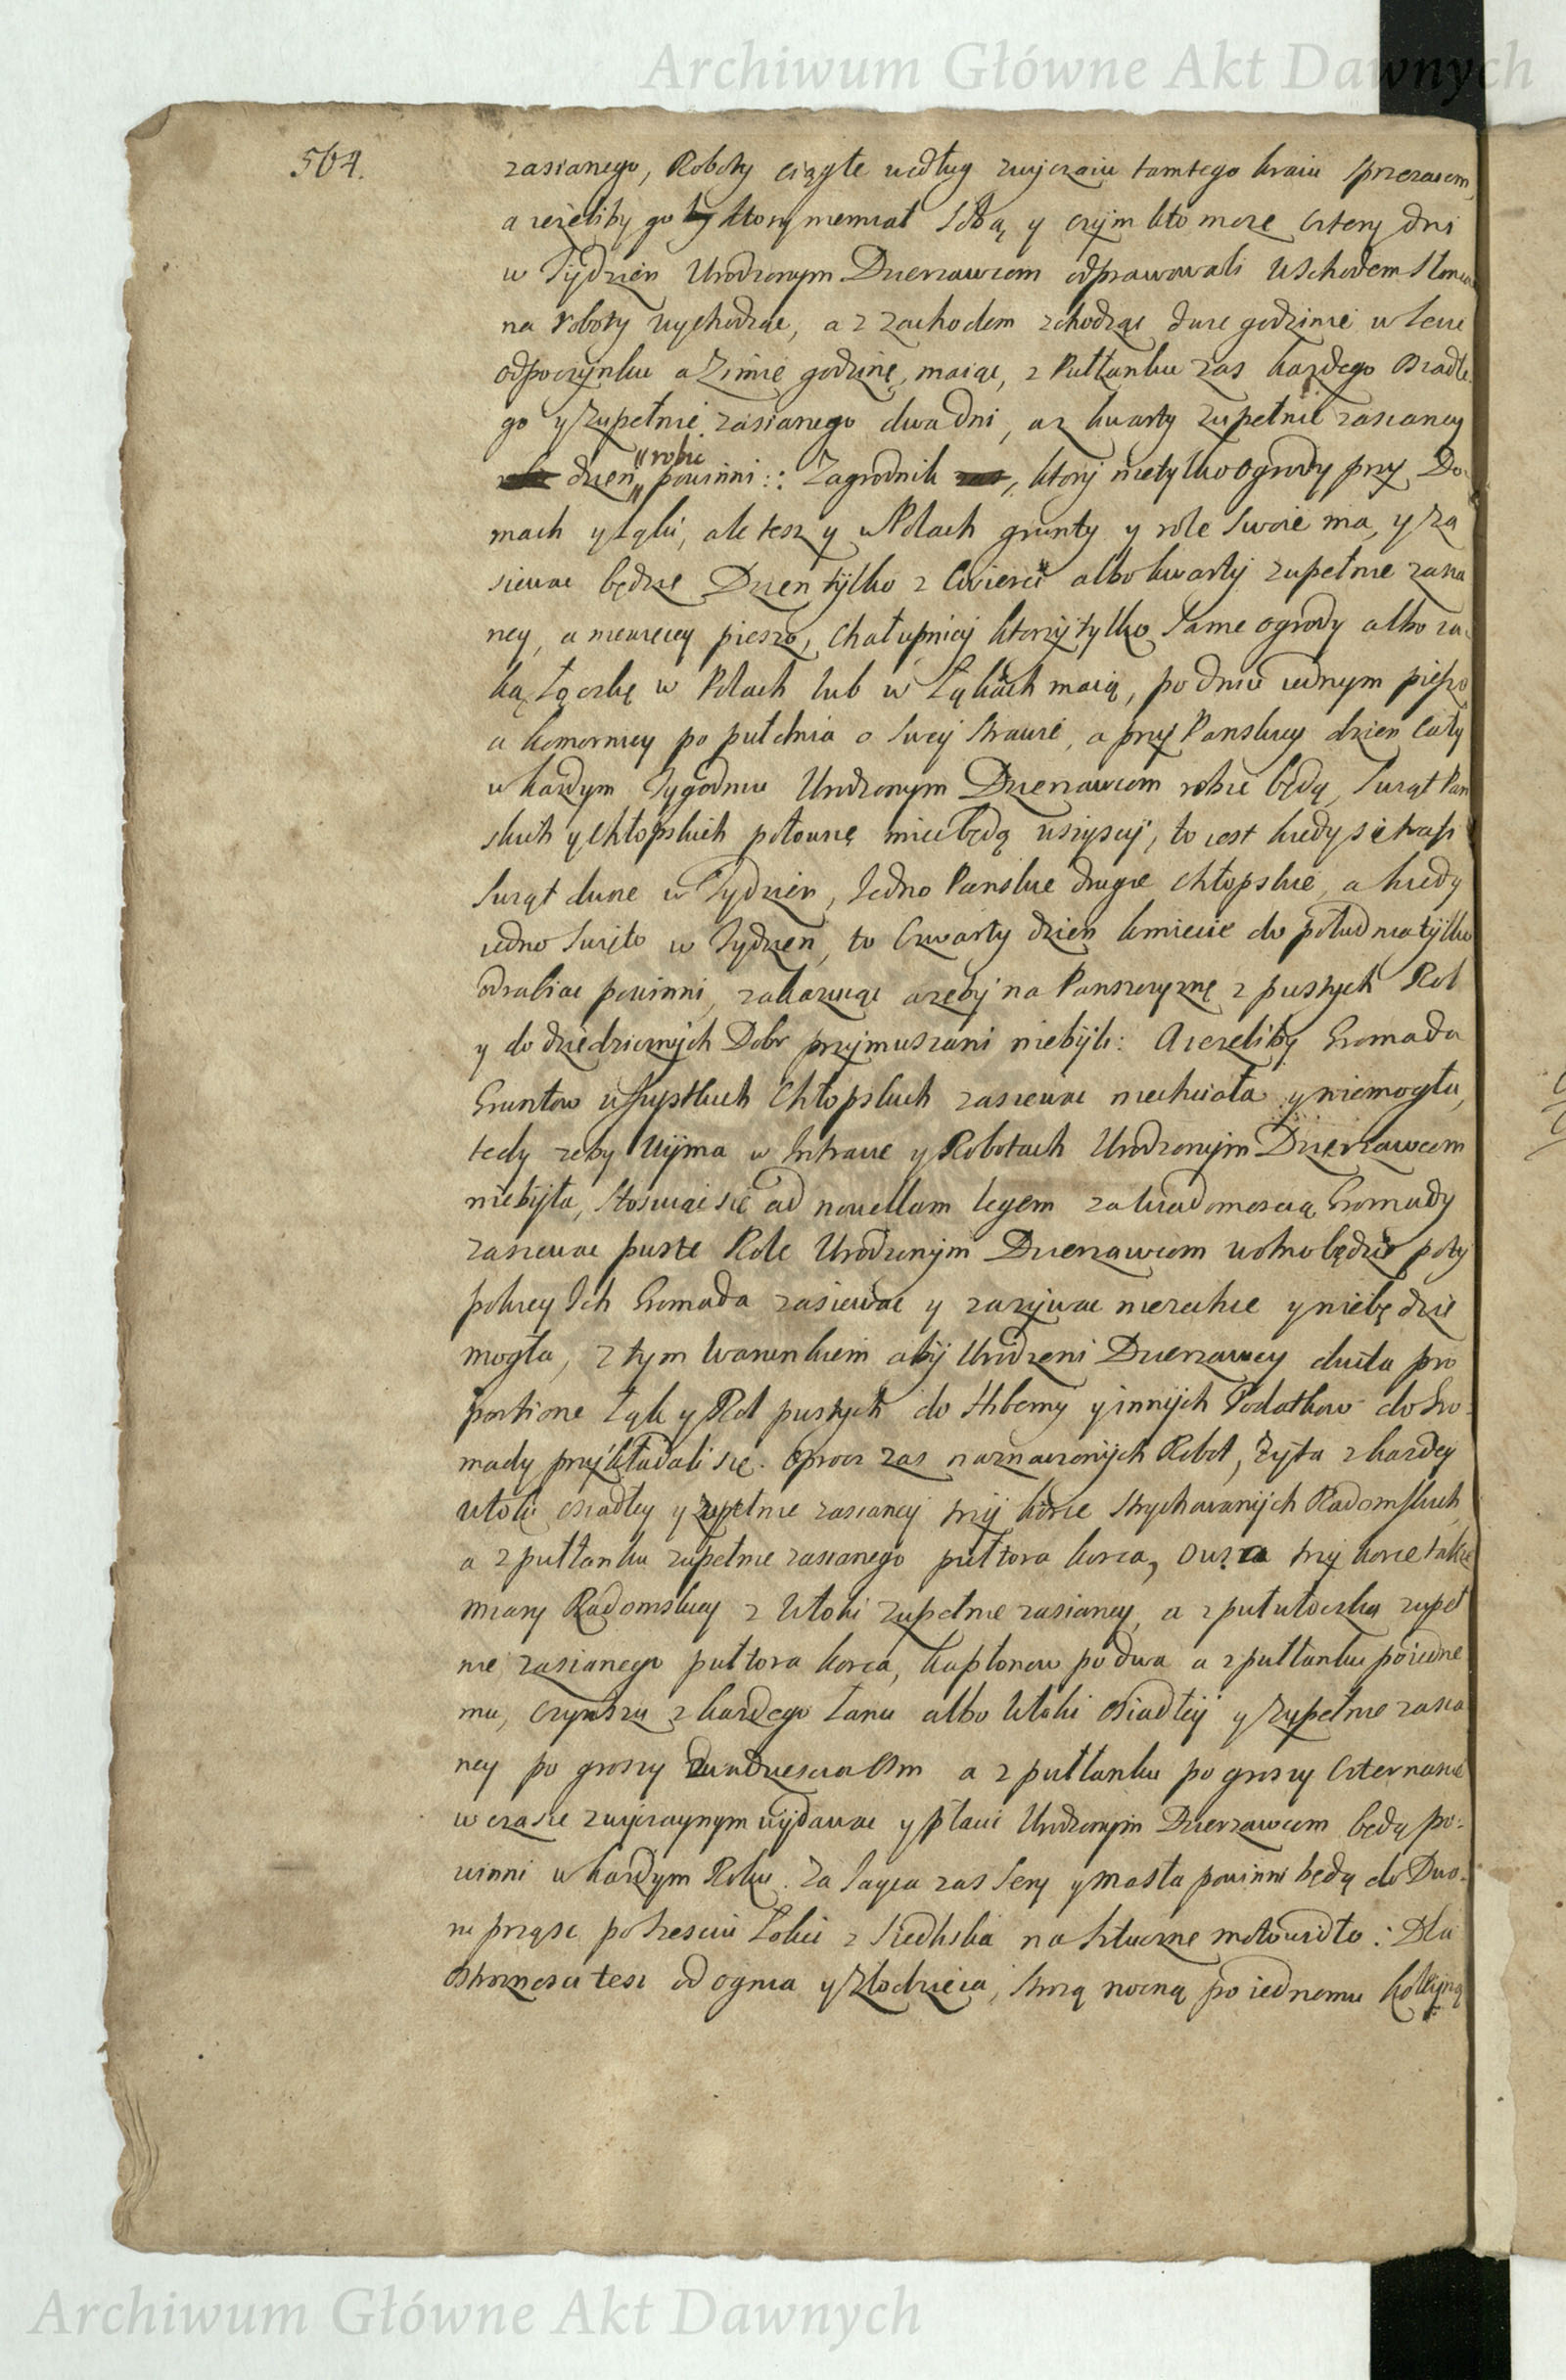 Archiwum Główne Akt Dawnych
564.
zasianego, Roboty ciągłe według zwyczaiu tamtego kraiu sprzezaiem,
a ieżeliby go ktory niemiał sobą y czym kto może cztery dni
w Tydzień Urodzonym Dzierzawcom odprawowali Wschodem Słonca
na roboty wychodząc, a z zachodem schodząc dwie godzinie w lecie
odpoczynku a Zimie godzinę, maiąc, z Pułłanku zas kazdego Osiadłe
go y zupełnie zasianego dwa dni, a z kwarty zupełnie zasianey
dzien robic powinni:: Zagrodnik, ktory nietylko Ogrody przy Do-
mach y Łąki, ale tesz y w Polach grunty y role swoie ma, y za
siewac będzie Dzien tylko z cwierci albo kwarty zupełnie zasia
ney, a niewięcey pieszo, Chałupnicy ktorzy tylko same ogrody albo ia-
ką Łączkę w Polach lub w Łąkach maią, po dniu iednym pieszo
a komornicy po puł dnia o swey strawie, a przy Panskiey dzien cały
w kazdym Tygodniu Urodzonym Dzierzawcom robic będą, Swiąt Pan
skich y Chłopskich połowę miec będą wszyscy, to iest kiedy się trafi
Swiąt dwie w Tydzien, Jedno Panskie drugie chłopskie, a kiedy
iedno Swięto w Tydzien, to Czwarty dzien kmiecie do południa tylko
odrabiac powinni, zakazuiąc azeby na Panszczyznę z pustych Rol
y do dziedzicznych Dobr przymuszani niebyli: A iezeliby Gromada
Gruntow wszystkich Chłopskich zasiewac niechciała y niemogła,
tedy zeby Uyma w Intracie y Robotach Urodzonym Dzierzawcom
niebyła, stosuiąc się ad novellam legem za wiadomoscią Gromady
zasiewac puste Role Urodzonym Dzierzawcom wolno będzie poty
pokiey Ich Gromada zasiewac y zazywac niezechce y niebędzie
mogła, z tym warunkiem aby Urodzeni Dzierzawcy iuxta pro
portione Łąk y Rol pustych do Hiberny y innych Podatkow do Gro-
mady przykładali się. Oprocz zas naznaczonych Robot, Żyta z kazdey
włoki osiadłey y zupełnie zasianey trzy korce strychowanych Radomskich,
a z pułłanku zupełnie zasianego pułtora korca, Owsa trzy korce takze
miary Radomskiey z Włoki zupełnie zasianey, a z pułwłoczka zupeł
nie zasianego pułtora korca, kapłonow po dwa a z pułłanku po iedne
mu, czynszu z kazdego Łanu albo Włoki osiadłey y zupełnie zasia
ney po groszy dwadziescia Osm a z pułłanku po groszy czternascie
w czasie zwyczaynym wydawac y płacic Urodzonym Dzierzawcom będą po-
winni w kazdym Roku. Za Jayca zas Sery y masła powinni będą do Dwo-
ru prząsc po trzesciu Łokci z Siedliska na sztuczne motowidło: Dla
ostroznosci tesz od ognia y Złodzieia, straż nocną po iednemu koleyną
Archiwum Główne Akt Dawnych